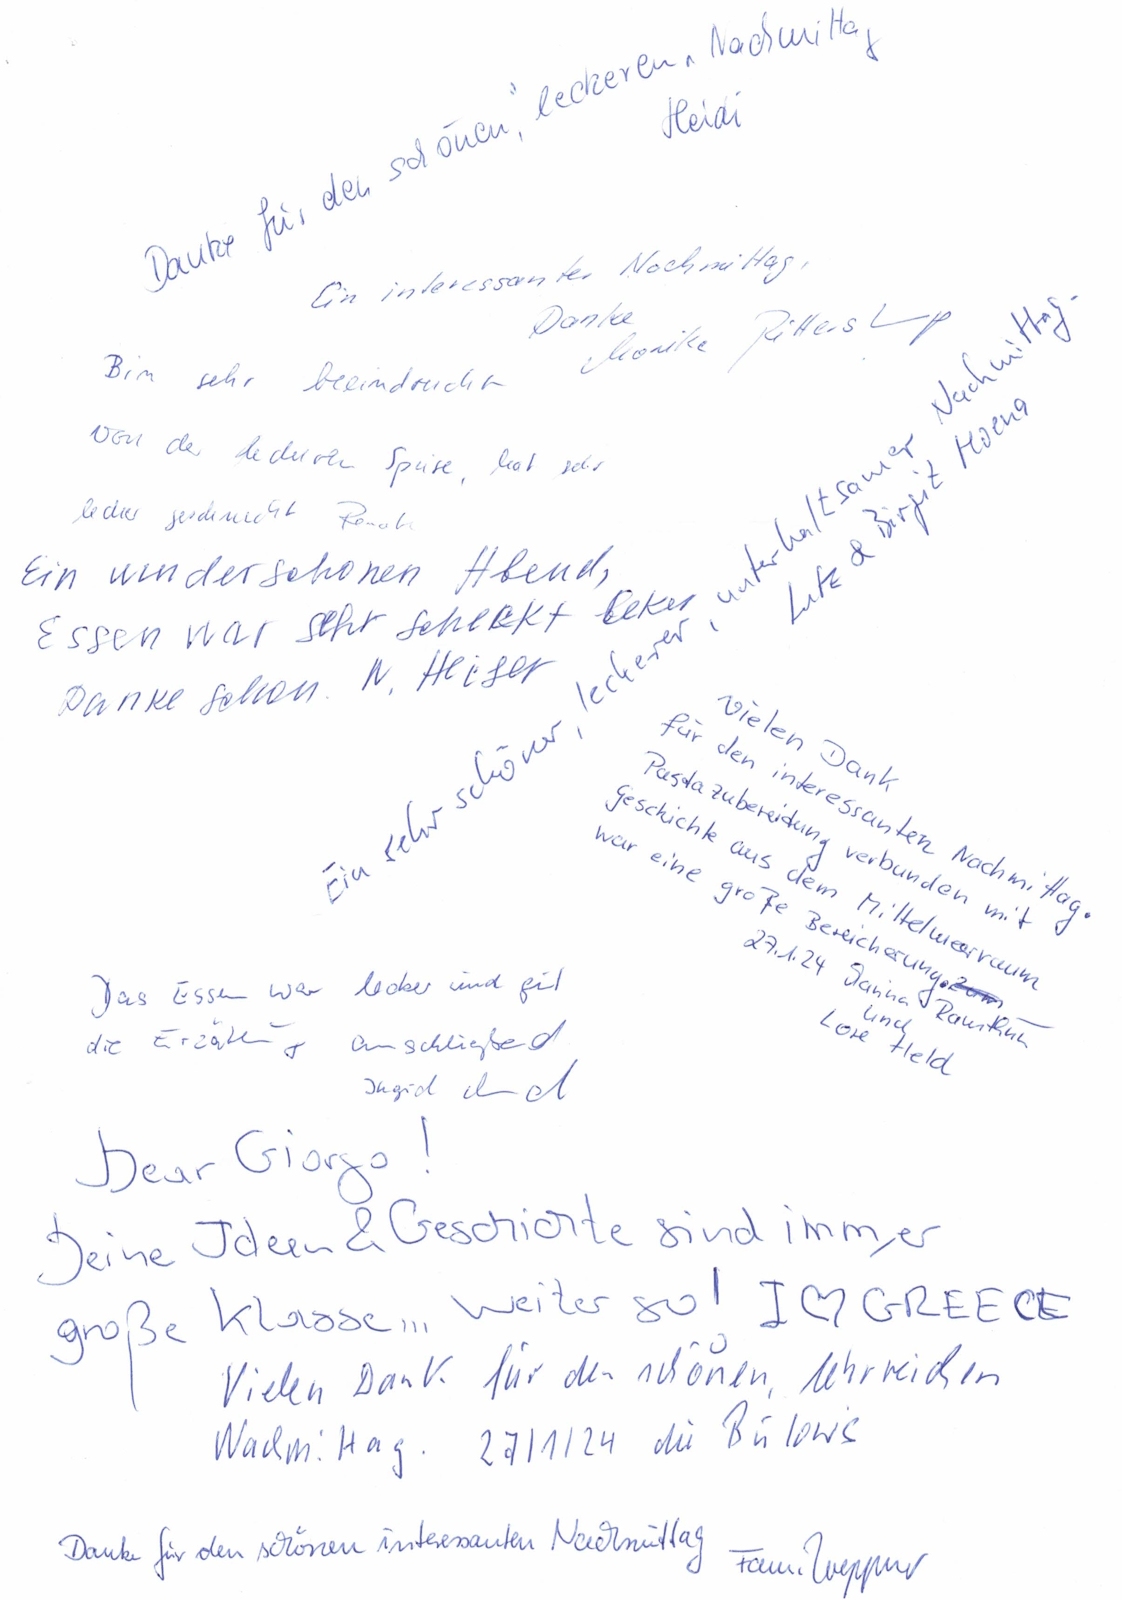 Danke für den schönen, leckeren, Nachmittag
Heidi
Ein interessanter Nachmittag,
Danke
Monika
Bin sehr beeindruckt
von der leckeren Speise, hat sehr
lecker geschmeckt Renate
Ein wunderschonen Abend,
Essen war sehr scheckt leker
Danke schon. N. Heiser
Ein sehr schöner, leckerer, unterhaltsamer Nachmittag.
Lutz & Birgit
Vielen Dank
für den interessanten Nachmittag.
Pastazubereitung verbunden mit
Geschichte aus dem Mittelmeerraum
war eine große Bereicherung.
27.1.24 Janina
und
Lore Held
Das Essen war lecker und gut
die Erzählung anschließed
Dear Giorgo!
Deine Ideen & Geschichte sind immer
große Klasse... weiter so! I ♡ GREECE
Vielen Dank für den schönen, lehrreichen
Nachmittag. 27/1/24 die Bülows
Danke für den schönen interessanten Nachmittag
Fam.